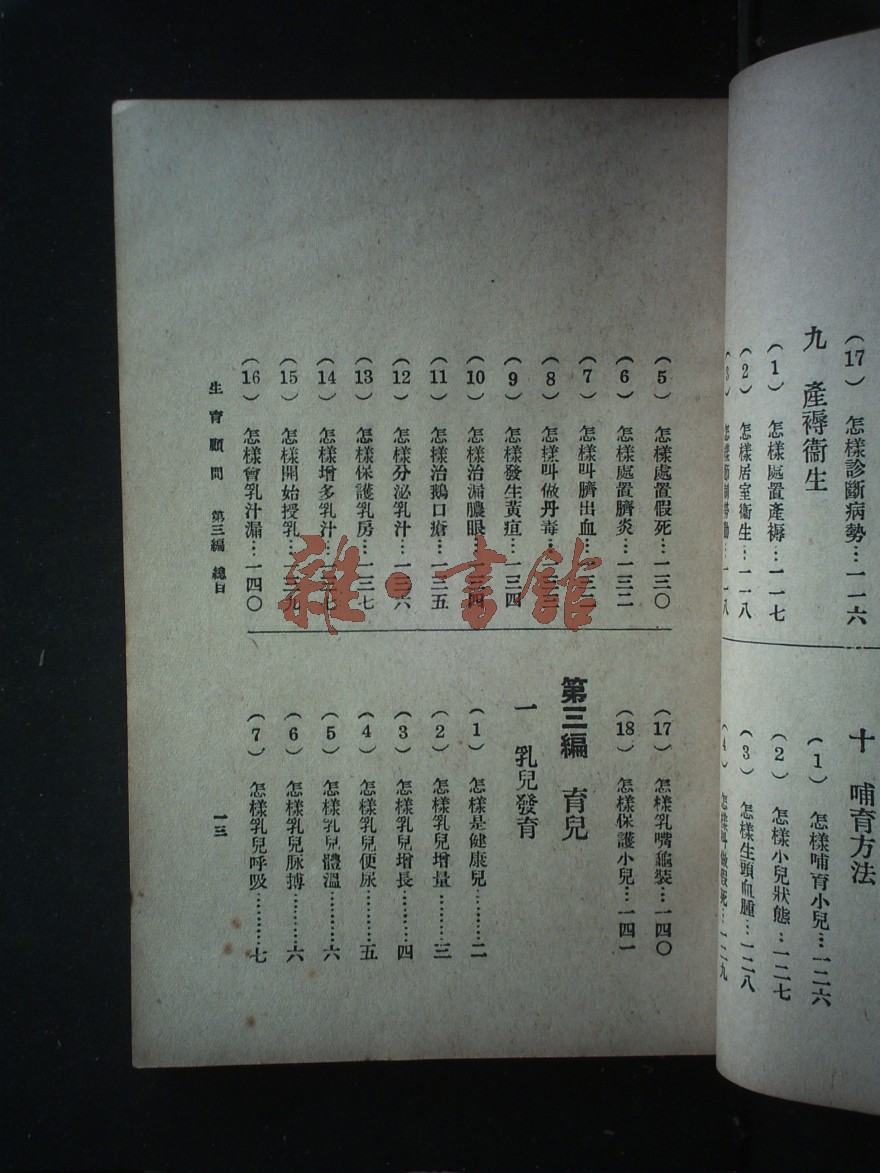 (17) 怎樣診斷病勢…一一六
九 產褥衞生
(1) 怎樣處置產褥…一一七
(2) 怎樣居室衞生…一一八
十 哺育方法
(1) 怎樣哺育小兒…一二六
(2) 怎樣小兒狀態…一二七
(3) 怎樣生頭血腫…一二八
(5) 怎樣處置假死…一三〇
(6) 怎樣處置臍炎…一三二
(7) 怎樣叫臍出血
(8) 怎樣叫做丹毒
(9) 怎樣發生黃疸…一三四
(10) 怎樣治漏膿眼
(11) 怎樣治鵝口瘡…一三五
(12) 怎樣分泌乳汁…一三六
(13) 怎樣保護乳房…一三七
(14) 怎樣增多乳汁
(15) 怎樣開始授乳
(16) 怎樣會乳汁漏…一四〇
(17) 怎樣乳嘴龜裝…一四〇
(18) 怎樣保護小兒…一四一
第三編 育兒
一 乳兒發育
(1) 怎樣是健康兒………二
(2) 怎樣乳兒增量………三
(3) 怎樣乳兒增長………四
(4) 怎樣乳兒便尿………五
(5) 怎樣乳兒體溫………六
(6) 怎樣乳兒脈搏………六
(7) 怎樣乳兒呼吸………七
生育顧問 第三編 總目
一三
雜·書館